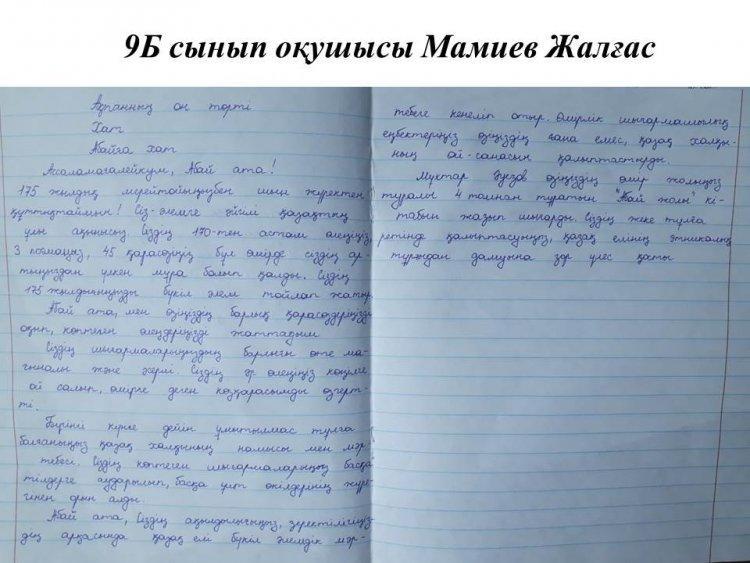 9Б сынып оқушысы Мамиев Жалғас
Ақпанның он төрті
Хат
Абайға хат
Ассаламағалейкум, Абай ата!
175 жылдық мерейтойыңызбен шын жүректен
құттықтаймын! Сіз-әлемге әйгілі қазақтың
ұлы ақынысыз. Сіздің 170-тен астам өлеңіңіз,
3 поэмаңыз, 45 қарасөзіңіз бұл өмірде сіздің ар-
тыңыздан үлкен мұра болып қалды. Сіздің
175 жылдығыңызды бүкіл әлем тойлап жатыр.
Абай ата, мен өзіңіздің барлық қарасөздеріңізді
оқып, көптеген өлеңдеріңізді жаттадым
Сіздің шығармаларыңыздың барлығы өте ма-
ғыналы және әсерлі. Сіздің әр өлеңіңіз көңілге
ой салып, өмірге деген көзқарасымды өзгерт-
ті.
Бүгінгі күнге дейін ұмытылмас тұлға
болғаныңыз қазақ халқының намысы мен мәр-
тебесі. Сіздің көптеген шығармаларыңыз басқа
тілдерге аударылып, басқа ұлт өкілдерінің жүре-
гінен орын алды.
Абай ата, Сіздің ақындығыңыз, зеректілігіңіз-
дің арқасында қазақ елі бүкіл әлемдік мәр-
тебеге кенеліп отыр. Өмірлік шығармашылық
еңбектеріңіз өзіңіздің ғана емес, қазақ халқы-
ның ой-санасын қалыптастырды.
Мұхтар Әуезов өзіңіздің өмір жолыңыз
туралы 4 томнан тұратын "Абай жолы" кі-
табын жазып шығарды. Сіздің жеке тұлға
ретінде қалыптасуыңыз, қазақ елінің этникалық
тұрғыдан дамуына зор үлес қосты